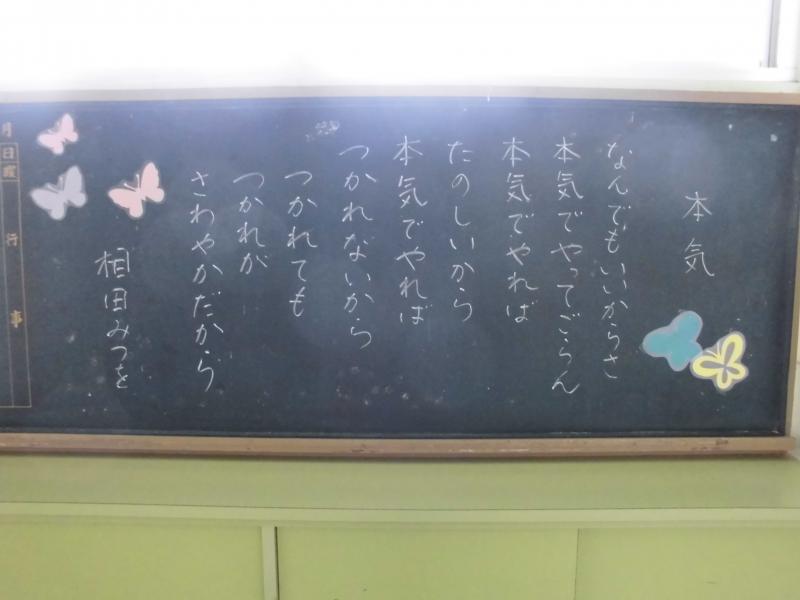 本気
なんでもいいからさ
本気でやってごらん
本気でやれば
たのしいから
本気でやれば
つかれないから
つかれても
つかれが
さわやかだから
相田みつを
月日曜
行事